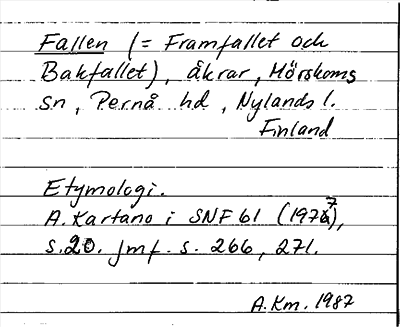 Fallen (= Framfallet och
Bakfallet), åkrar, Mörskoms
sn, Pernå hd, Nylands l.
Finland
Etymologi.
A. Kartano i SNF 61 (1977),
s. 20. Jmf. s. 266, 271.
A.Km. 1987